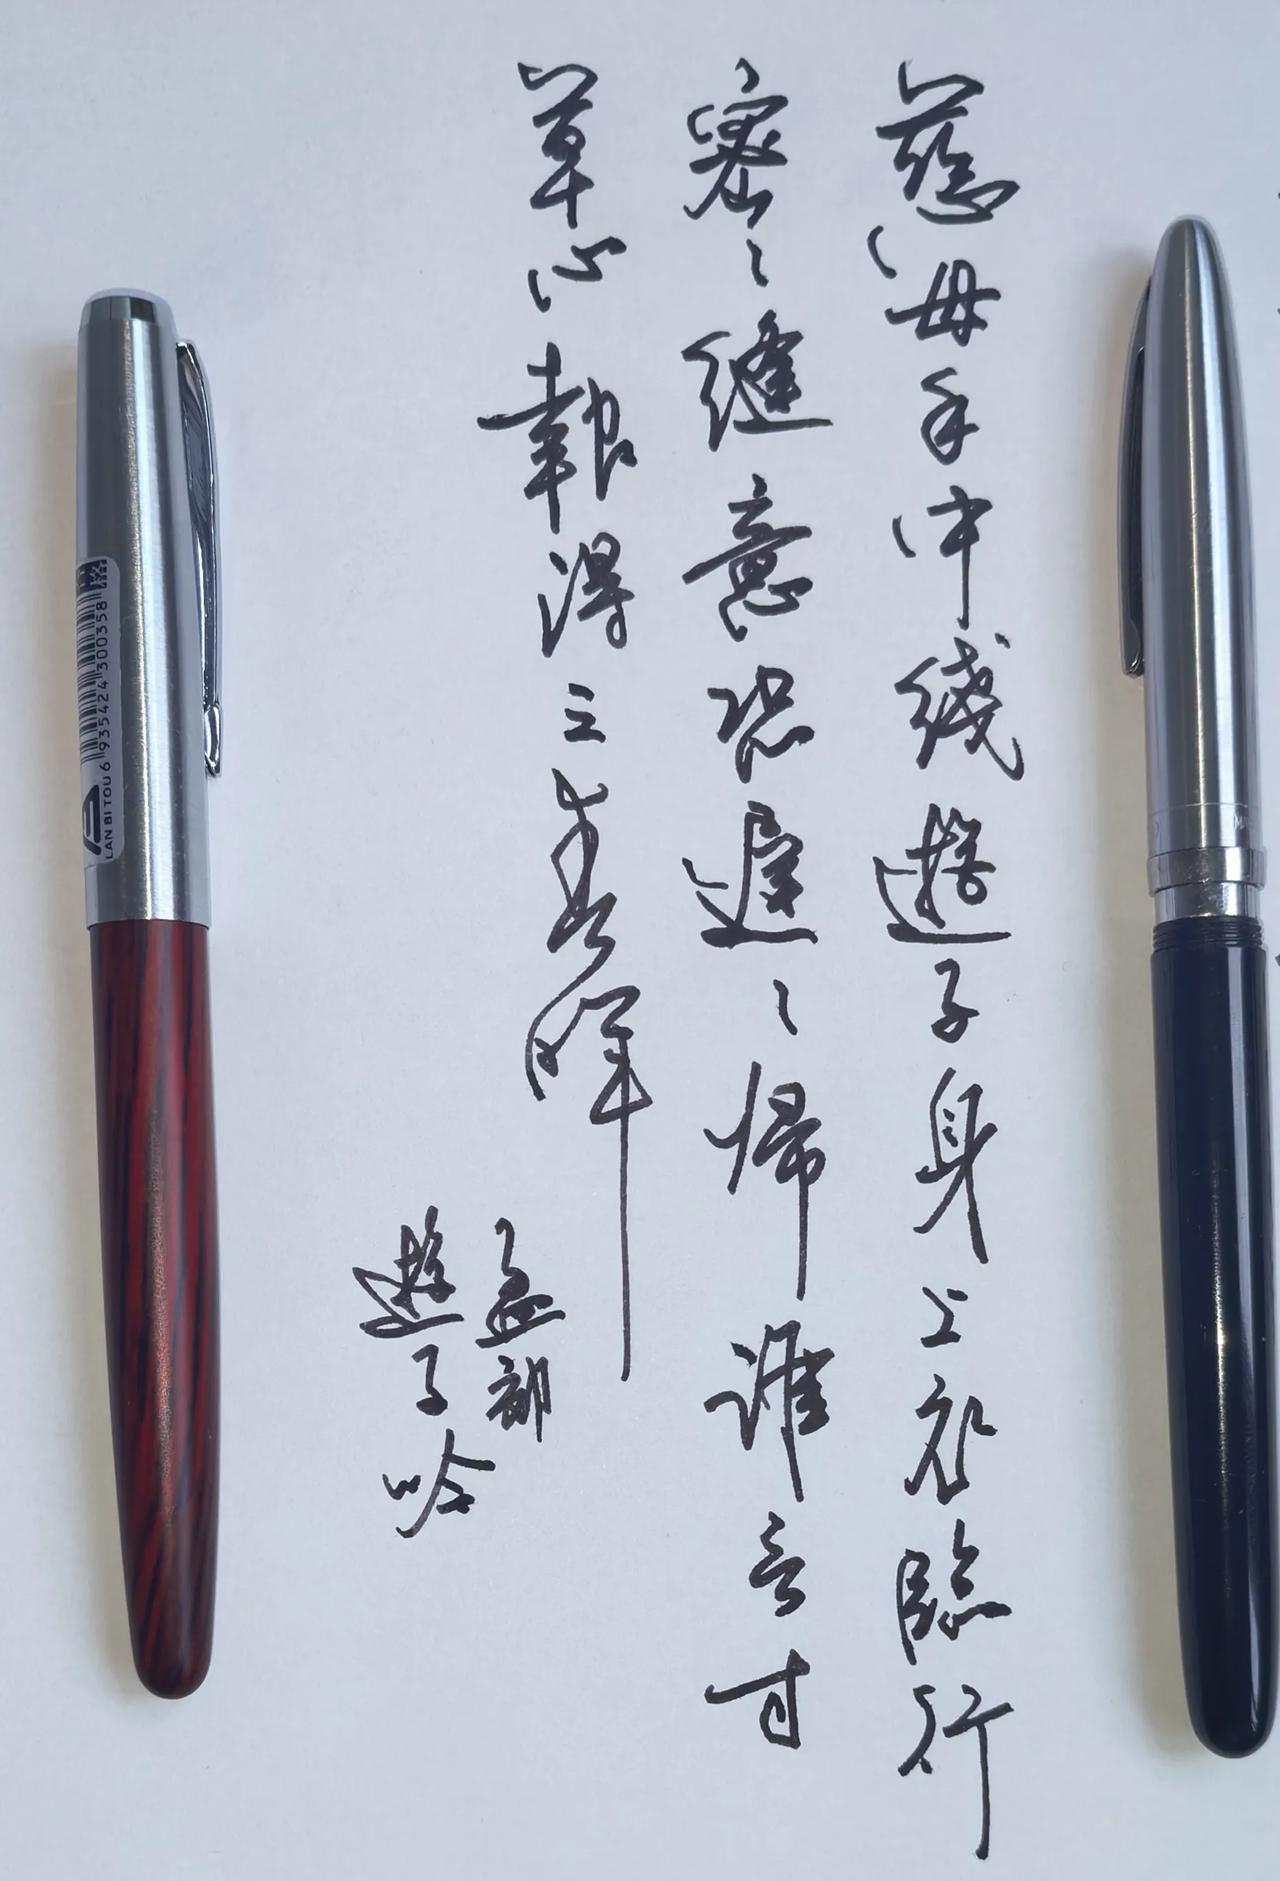 慈母手中线遊子身上衣臨行
密々縫意恐遲々帰谁言寸
草心報得三春晖
孟郊
遊子吟
LAN BI TOU 6 935424 300358